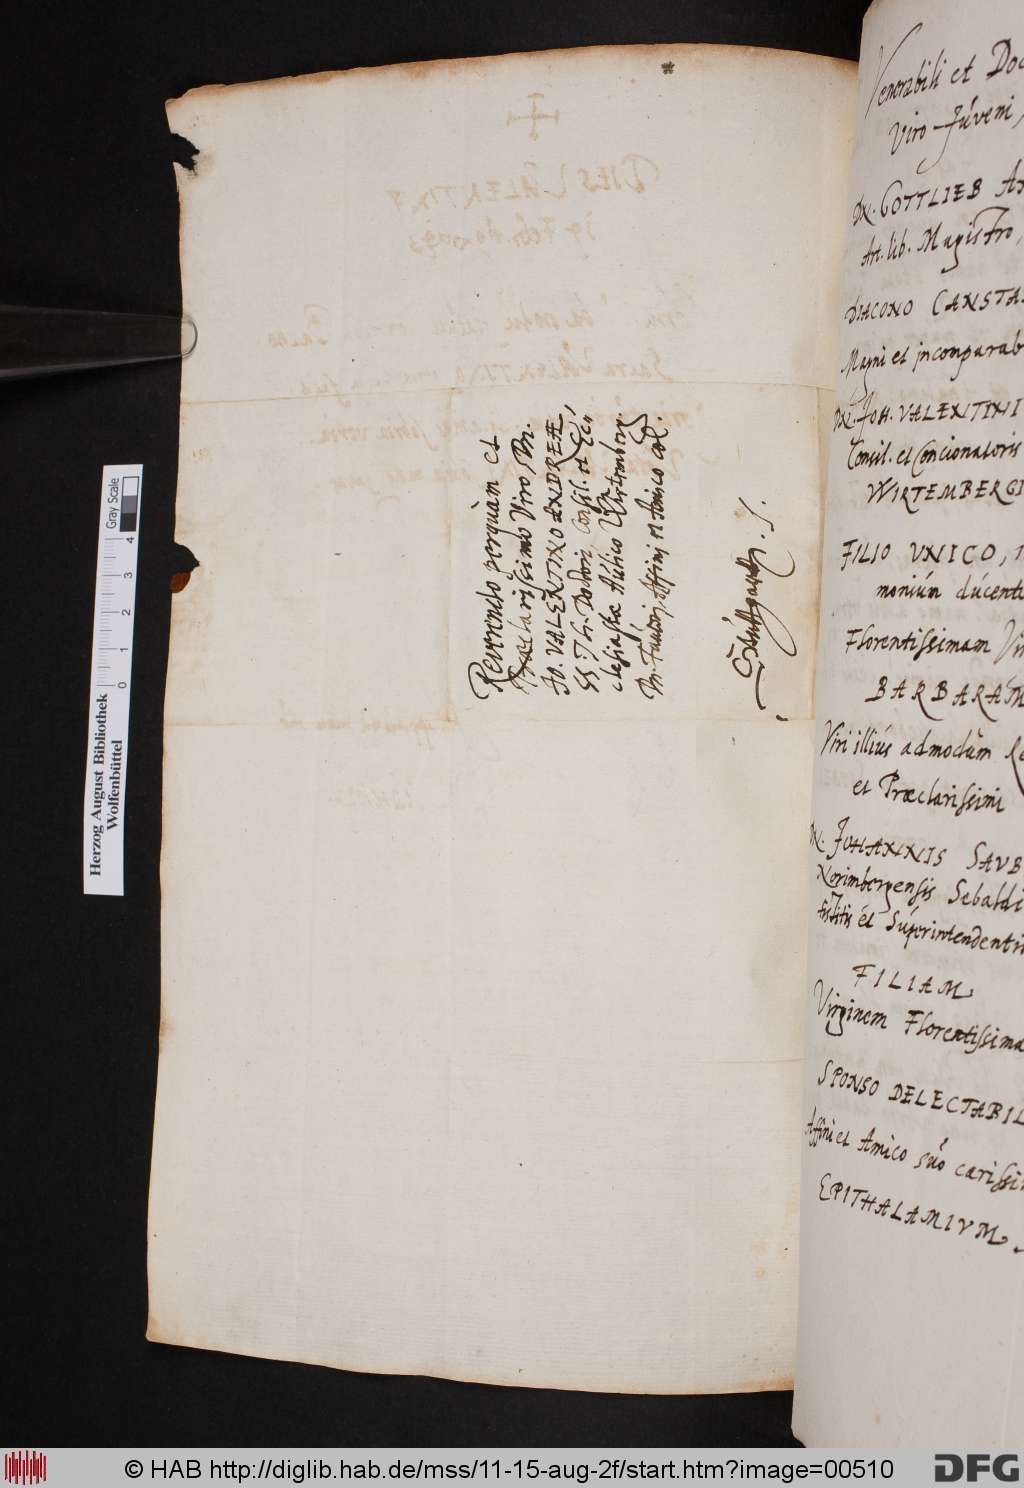 Reverendo perquàm et
Præclarissimo Viro, Dn.
Jo. VALENTINO ANDREÆ
SS. Th. Doctori Consil. et Ec=
clesiastæ Aúlico Wirtemberg.
Dn. Faútori, Affini et Amico col.
Stúttgardt. S.
Venerabili et Doc
Viro Júveni,
DN. GOTTLIEB AN
Art. lib. Magistro,
DIACONO CANSTA
Magni et incomparab
DN. JOH. VALENTINI
Consil. et Concionatoris
WIRTEMBERGI
FILIO VNICO,
moniúm dúcenti
Florentissimam Vir
BARBARAM
Viri illiús admodùm Re
et Præclarissimi
DN. JOHANNIS SAVB
Norimbergensis Sebaldi
tistitis et Súperintendenti
FILIAM
Virginem Florentissima
SPONSO DELECTABIL
Affini et Amico súo carissi
EPITHALAMIVM.
Herzog August Bibliothek
Wolfenbüttel
0 1 2 3 4
Gray Scale
© HAB http://diglib.hab.de/mss/11-15-aug-2f/start.htm?image=00510
DFG